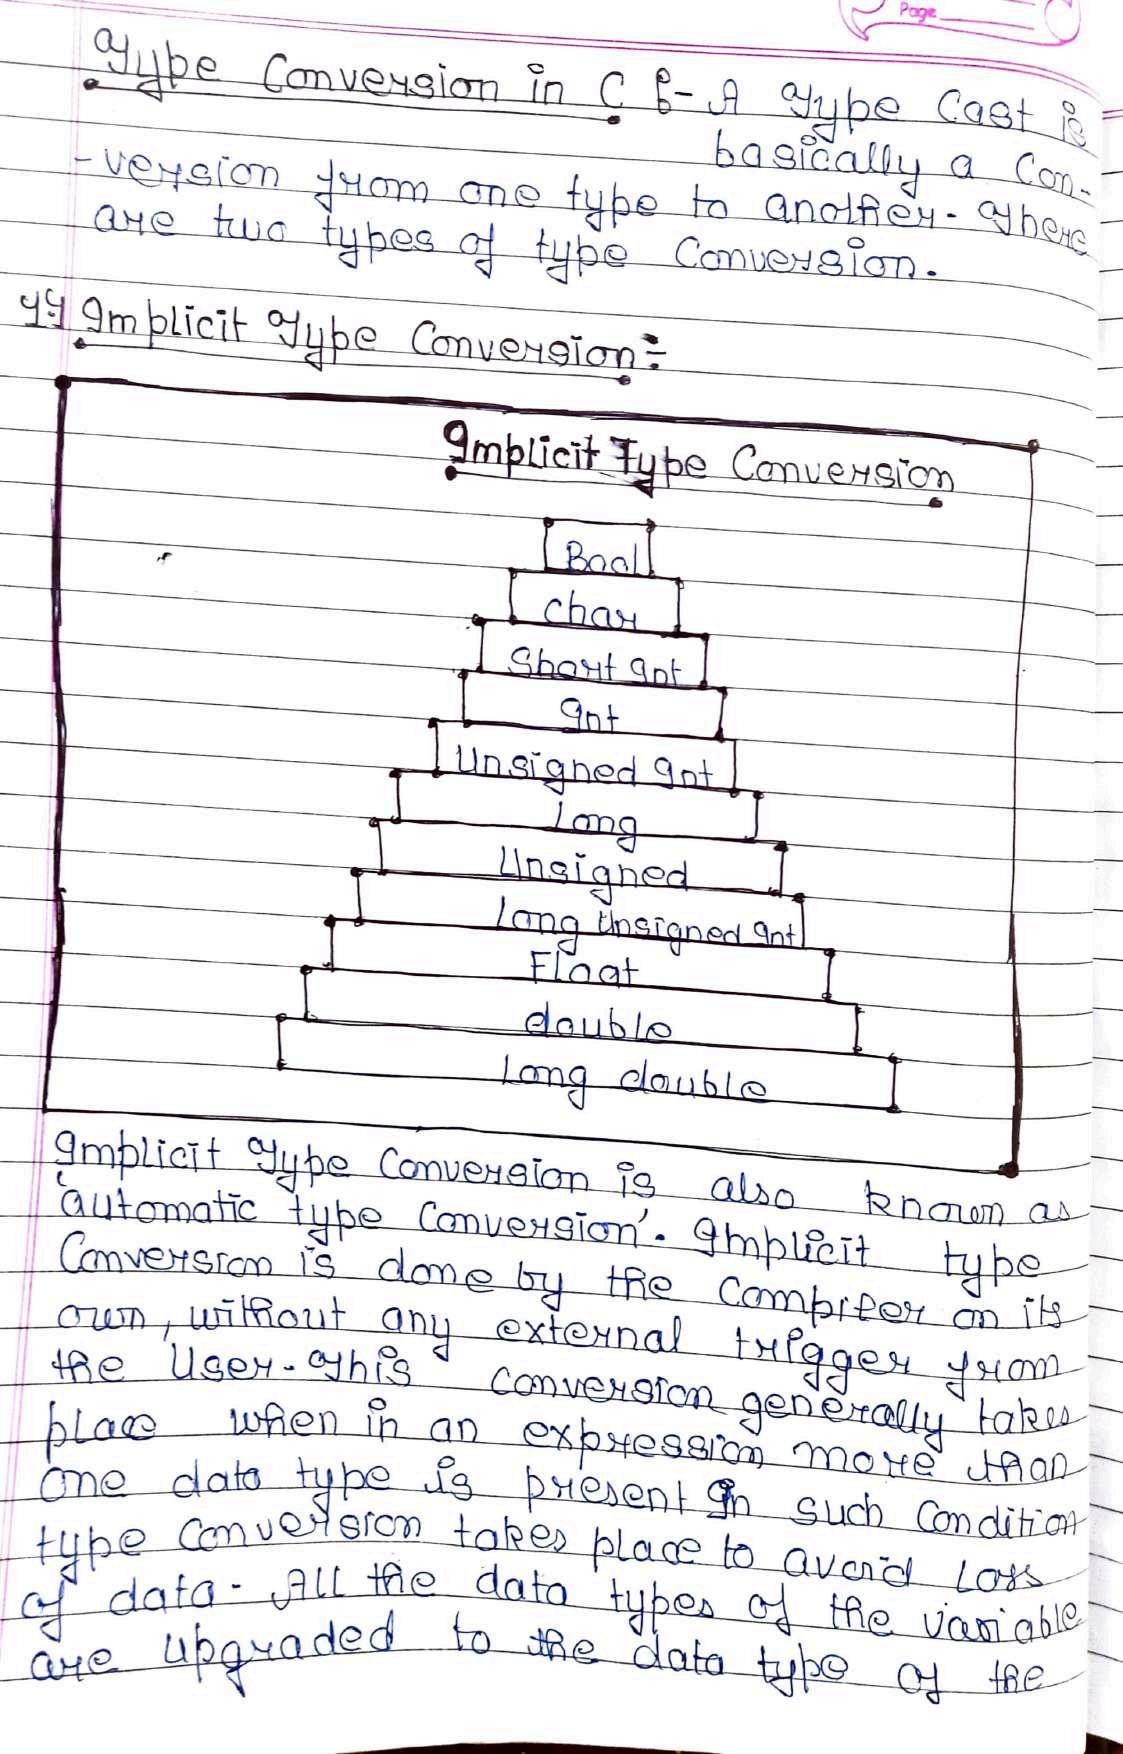 Page
Type Conversion in C :- A Type Cast is
basically a Con-
-version from one type to another. There
are two types of type Conversion.
1.) Implicit Type Conversion:-
Implicit Type Conversion
Bool
Char
Short Int
Int
Unsigned Int
Long
Unsigned
Long Unsigned Int
Float
double
Long double
Implicit Type Conversion is also known as
'automatic type Conversion'. Implicit type
Conversion is done by the Compiler on its
own, without any external trigger from
the User. This conversion generally takes
place when in an expression more than
one data type is present In such Condition
type Conversion takes place to avoid Loss
of data. All the data types of the variable
are upgraded to the data type of the